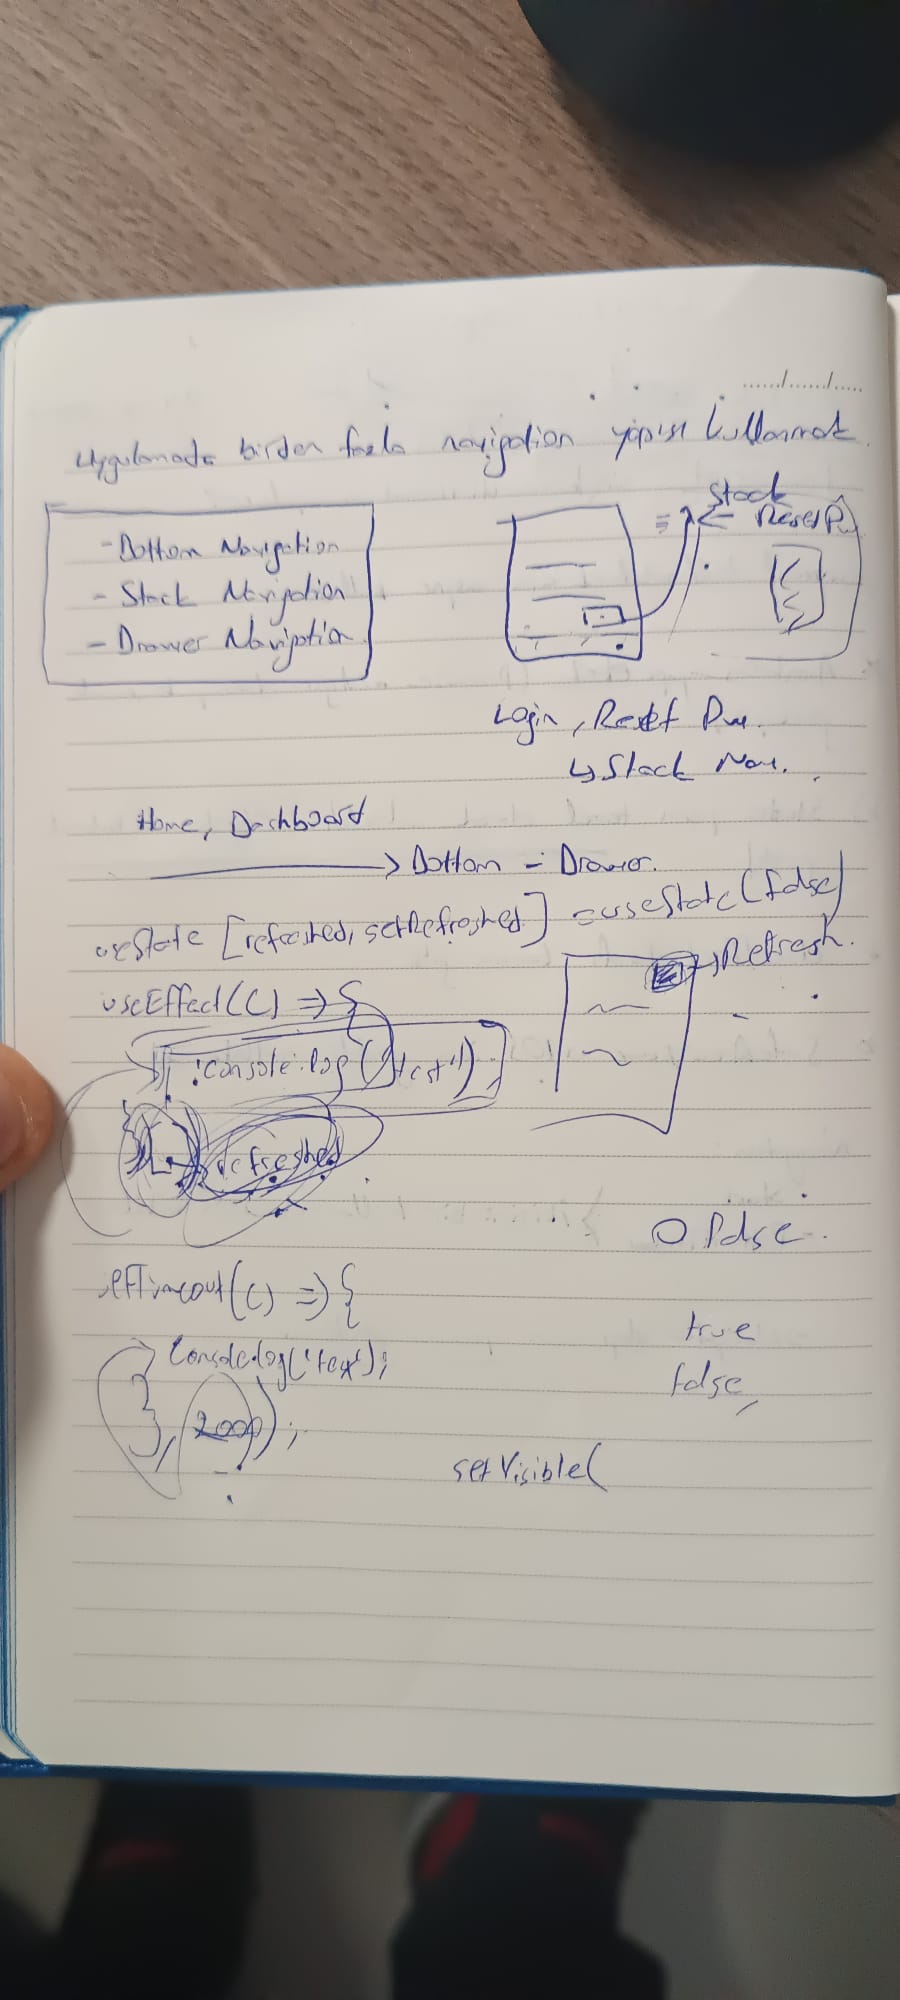 Uygulamada birden fazla navigation yapısı kullanmak.
- Bottom Navigation
- Stack Navigation
- Drawer Navigation
Stack
Reset P
Login, Reset Pw.
↳ Stack Nav.
Home, Dashboard
→ Bottom - Drawer.
useState [refreshed, setRefreshed] = useState(false)
→ Refresh.
useEffect(() => {
console.log('test')
refreshed
setTimeout(() => {
console.log('test');
}, 2000);
false.
true
false,
setVisible(